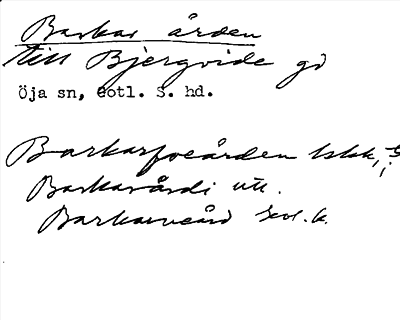 Barkar ården
till Bjergvide gd
Öja sn, Gotl. S. hd.
Barkarfoården
Barkarårdi utt.
Barkarveård